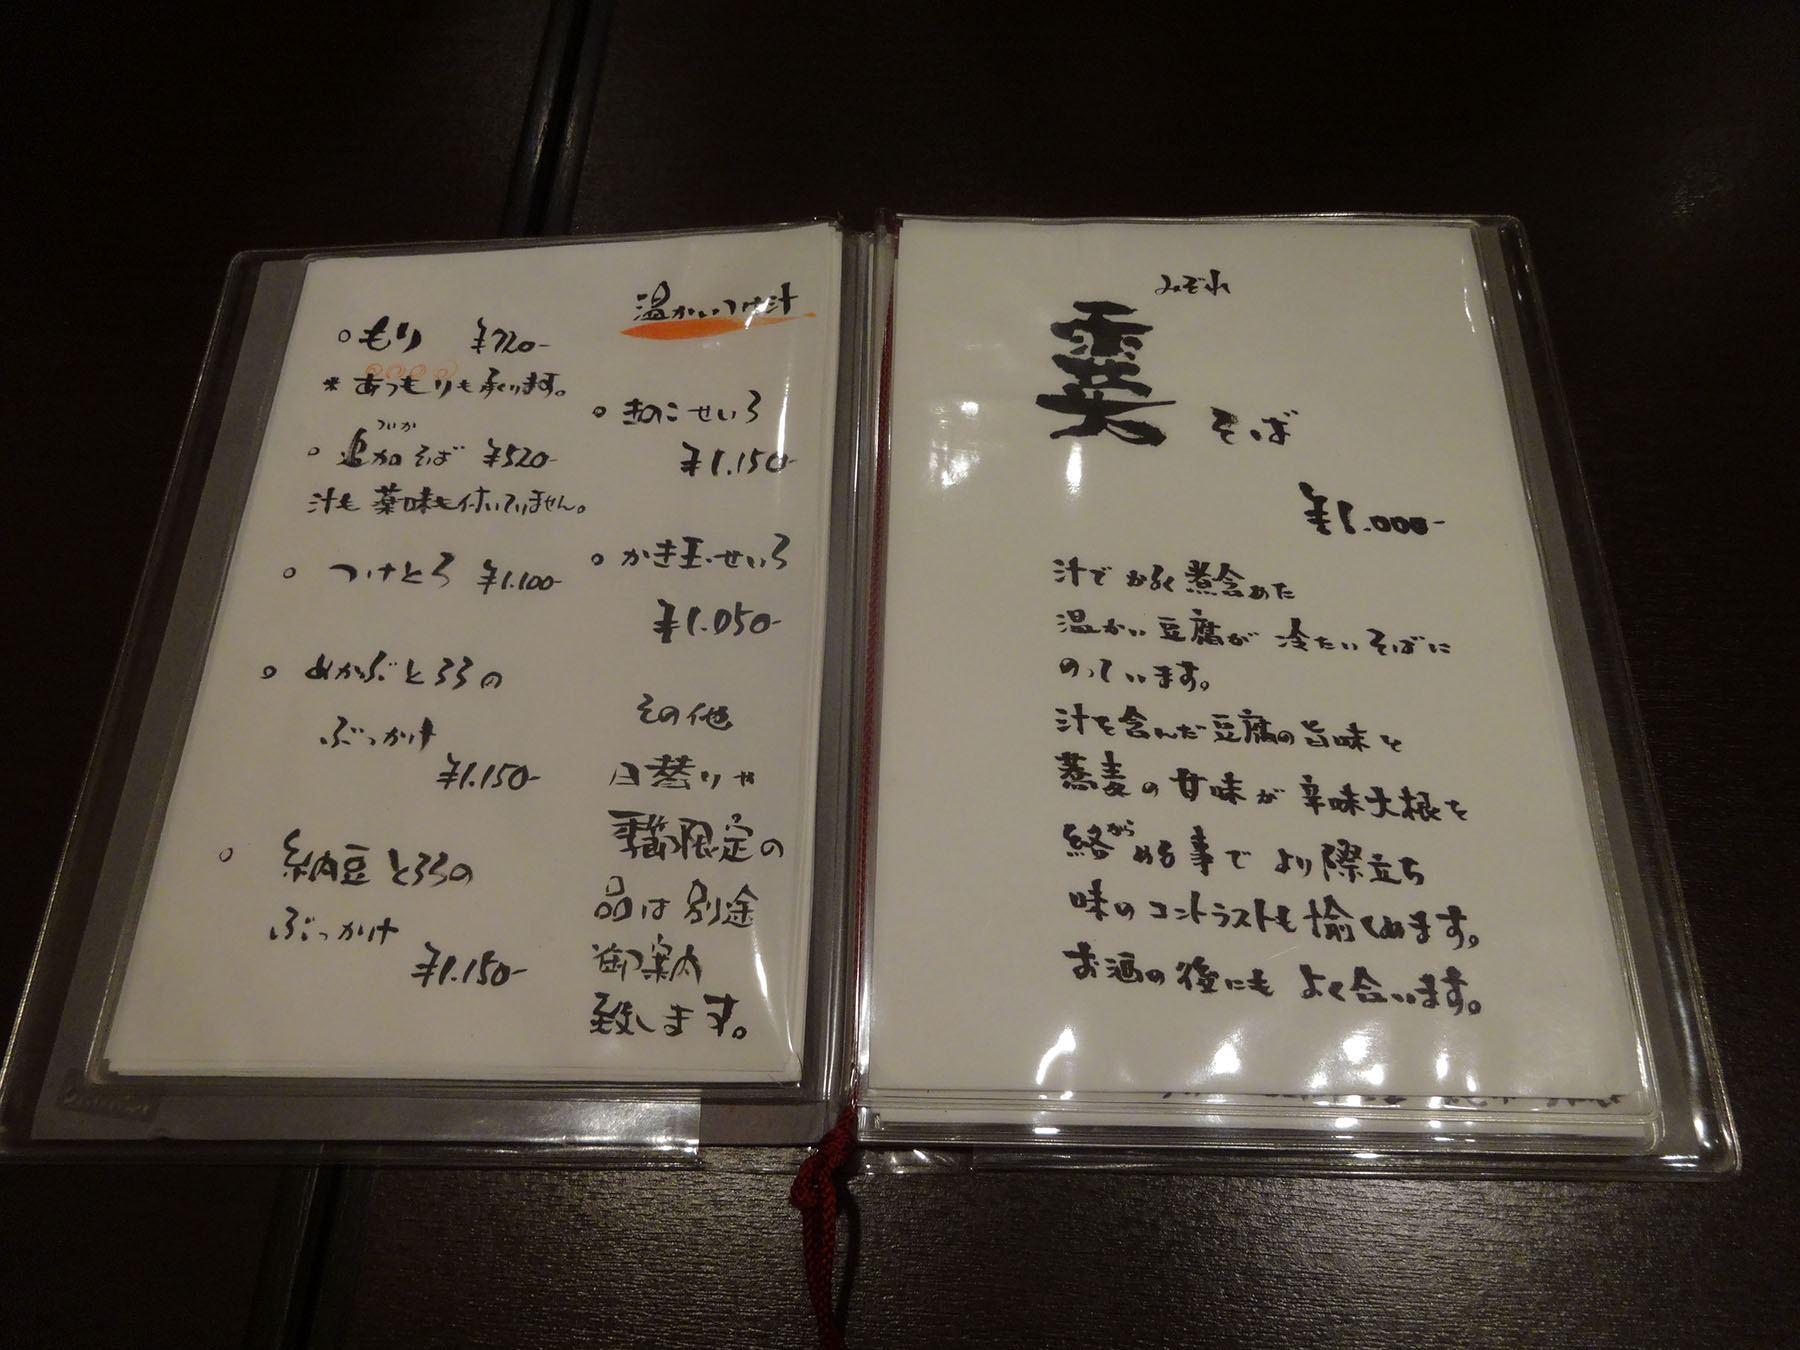 もり ¥720-
＊あつもりも承ります。
ついか
追加そば ¥520-
汁も薬味も付いていません。
つけとろ ¥1.100-
めかぶとろろの
ぶっかけ
¥1.150-
納豆とろろの
ぶっかけ
¥1.150-
温かいつけ汁
きのこせいろ
¥1.150-
かき玉せいろ
¥1.050-
その他
日替りや
季節限定の
品は別途
御案内
致します。
みぞれ
霙そば
¥1.000-
汁でかるく煮含めた
温かい豆腐が冷たいそばに
のっています。
汁を含んだ豆腐の旨味と
蕎麦の甘味が辛味大根を
から
絡める事でより際立ち
味のコントラストも愉しめます。
お酒の後にもよく合います。